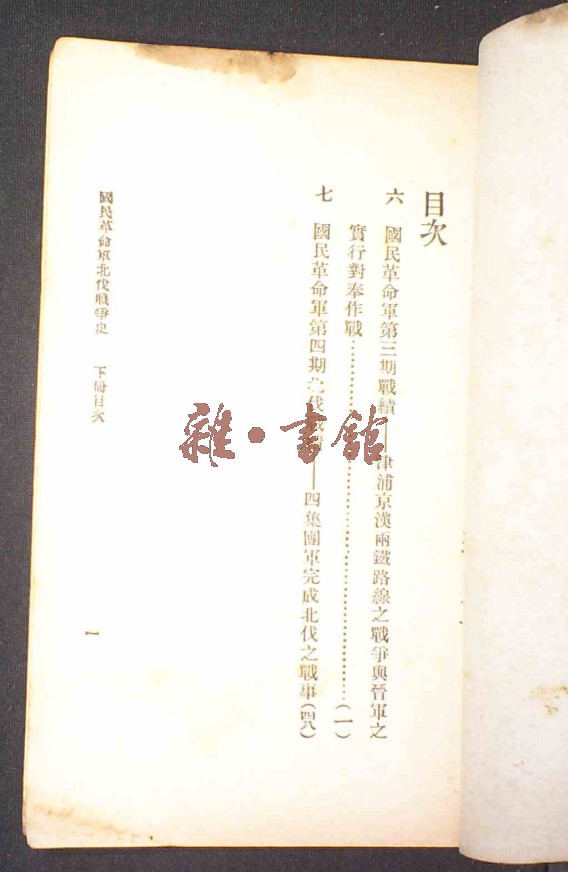 目次
六 國民革命軍第三期戰績——津浦京漢兩鐵路線之戰爭與晉軍之
實行對奉作戰……(一)
七 國民革命軍第四期北伐戰——四集團軍完成北伐之戰事(四八)
國民革命軍北伐戰爭史 下冊目次
一
雜·書館